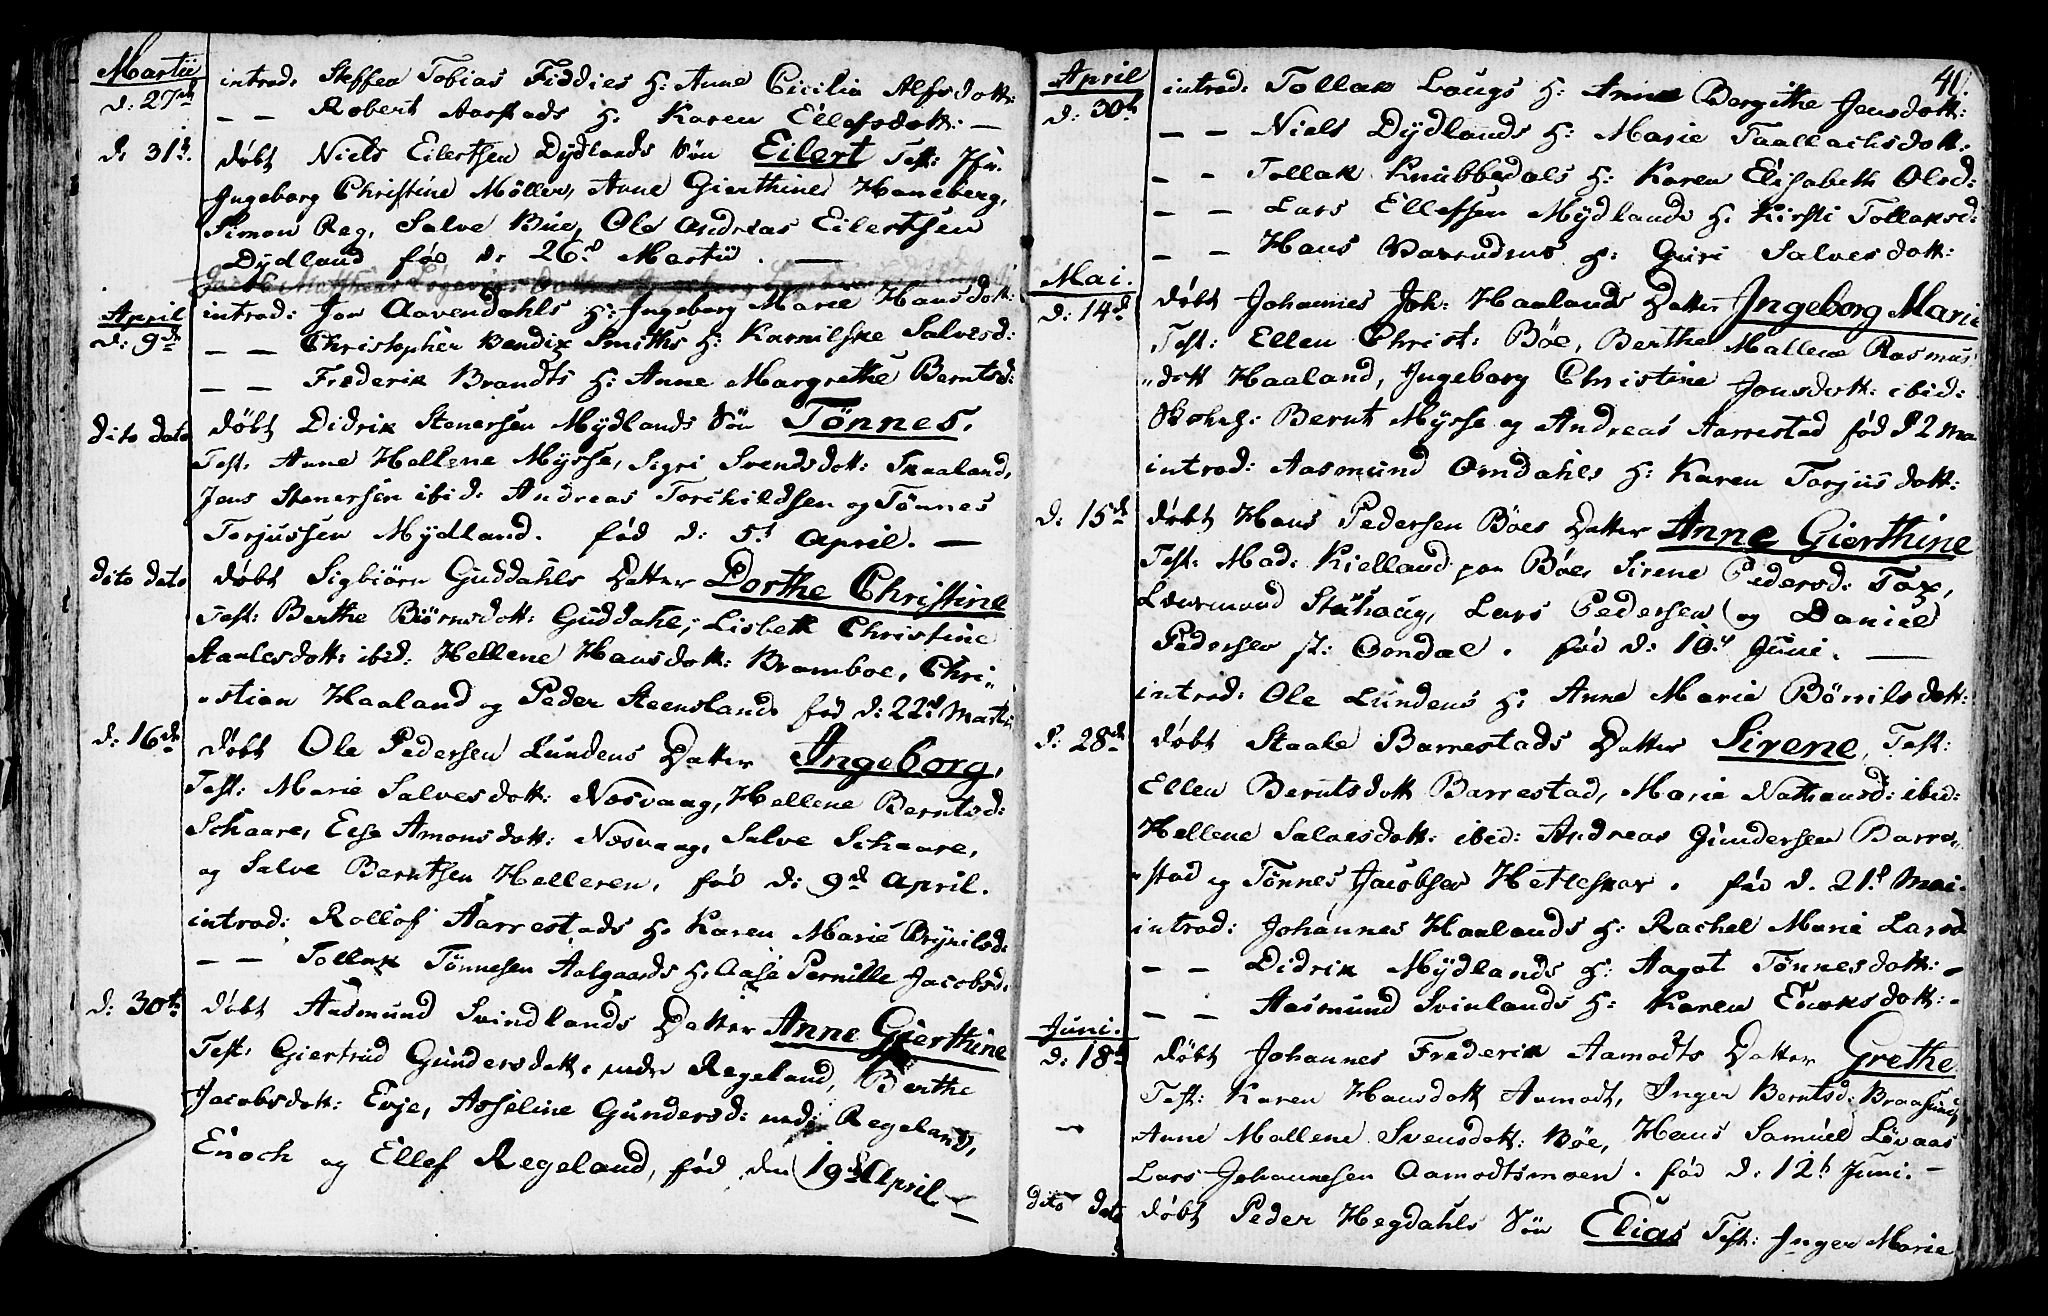 Martii
d: 27de introd: Steffen Tobias Fiddies H: Anne Cicilia Alfsdott:
– – Robert Aarstads H: Karen Ellefsdott: –
d: 31t. døbt Niels Eilertsen Dydlands Søn Eilert Test: Jfr.
Ingeborg Christine Møller, Anne Gierthine Haneberg,
Simon Reg, Salve Bue, Ole Andreas Eilertsen
Dydland fød d: 26d Martii. –
April
d: 9de introd: Jon Aavendahls H: Ingeborg Marie Hansdott:
– – Christopher Bendix Smiths H: Karnilske Salvesd:
– – Frederik Brandts H: Anne Margrethe Berntsd:
dito dato døbt Didrik Stenersen Mydlands Søn Tønnes.
Test. Anne Hellene Mysse, Sigri Svendsdott: Skaaland,
Jens Stenersen ibid: Andreas Torkildsen og Tønnes
Torjussen Mydland. fød d: 5t April. –
dito dato døbt Sigbiørn Guddahls Datter Dorthe Christine
Test: Berthe Biørnsdott: Guddahl, Lisbeth Christine
Staalesdott: ibid: Hellene Hansdott: Bramboe, Chri„
„stian Haaland og Peder Steensland. fød d: 22d Martii
d: 16de døbt Ole Pedersen Lundens Datter Ingeborg,
Test: Marie Salvesdott: Nosvaag, Hellene Berntsd:
Schaare, Else Amonsdott: Nosvaag, Salve Schaare,
og Salve Berntsen Helleren, fød d: 9d April.
introd: Rollof Aarrestads H: Karen Marie Brynilsd:
– – Tollak Tønnesen Aalgaards H: Aase Pernille Jacobsd.
d: 30te døbt Aasmund Svindlands Datter Anne Gierthine
Test: Giertrud Gundersdott: nedre Regeland, Berthe
Jacobsdott: Evje, Asseline Gundersd: ned: Regeland,
Enoch og Ellef Regeland, fød den 19d April –
41.
April
d: 30te introd: Tollak Laugs H: Anne Bergithe Jensdott:
– – Niels Dydlands H: Marie Taallachsdott:
– – Tollak Knubbedals H: Karen Elisabeth Olsd:
– – Lars Ellefsen Mydlands H: Kirsti Tollaksd:
– – Hans H: Guri Salvesdott:
Mai.
d: 14de døbt Johannes Joh: Haalands Datter Ingeborg Marie
Test: Ellen Christ: Bøe, Berthe Mallene Rasmus
„dott Haaland, Ingeborg Christine Jonsdott: ibid:
Bernt Mysse og Andreas Aarrestad fød d 2 Mai
introd: Aasmund Omdahls H: Karen Torjusdott:
d: 15de døbt Hans Pedersen Bøes Datter Anne Gierthine
Test: Mad: Kielland paa Bøe, Sirene Pedersd: Tax,
Stuhaug, Lars Pedersen og Daniel
Pedersen st: Omdal. fød d: 10d Juni. –
introd: Ole Lundens H: Anne Marie Børrilsdott:
d: 28de døbt Staale Barrestads Datter Sirene, Test:
Ellen Berntsdott Barrestad, Marie Nathansd: ibid:
Hellene Salvesdott: ibid: Andreas Gundersen Barre„
„stad og Tønnes Jacobsen Hetleskar. fød d. 21d Mai.
introd: Johannes Haalands H: Rachel Marie Larsd
– – Didrik Mydlands H: Aagot Tønnesdott: –
– – Aasmund Svinlands H: Karen Enoksdott: –
Juni.
d: 18de døbt Johannes Frederik Aamodts Datter Grethe
Test: Karen Hansdott Aamodt, Inger Berntsd: Braasund,
Anne Mallene Svensdott: Bøe, Hans Samuel Løvaas
Lars Johannesen Aamodtsmoen. fød d: 12t Juni. –
dito dato døbt Peder Hegdahls Søn Elias Test: Inger Marie